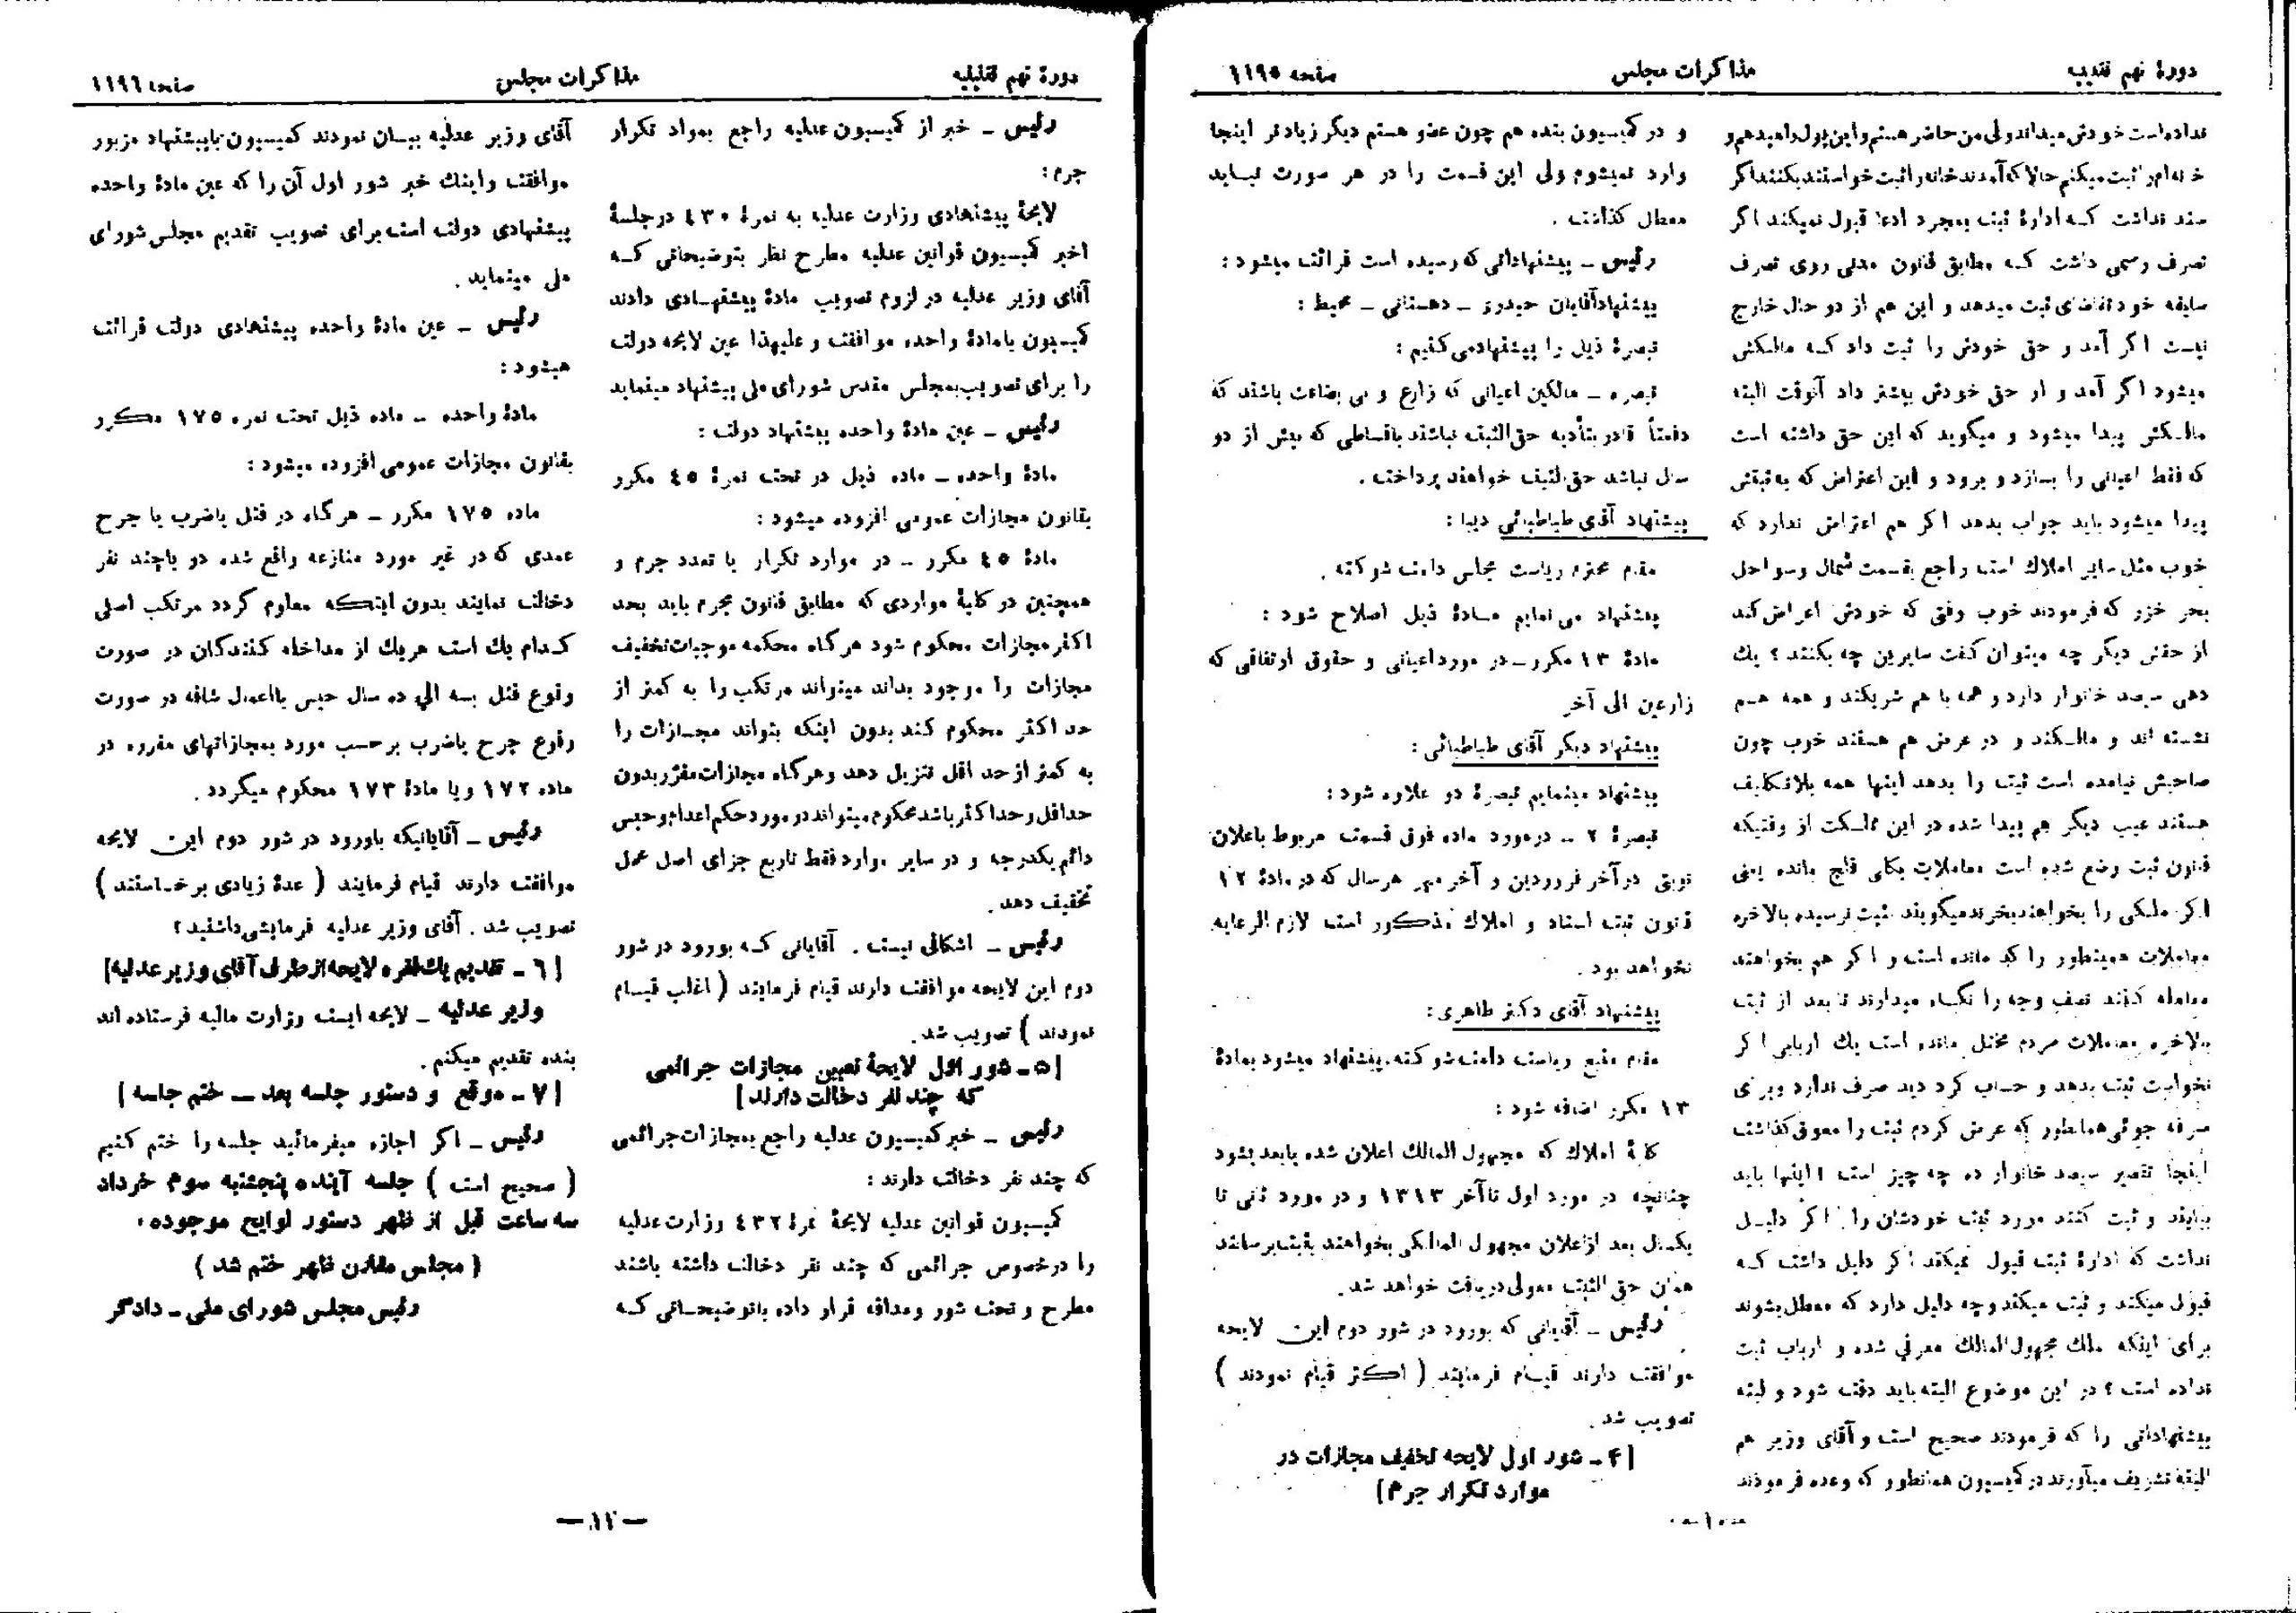 دورهٔ نهم تقنینیه
مذاکرات مجلس
صفحه ۱۱۹۵
نداده است خودش میداند ولی من حاضر هستم و این پول را میدهم و
خانه‌ام را ثبت میکنم حالا که آمدند خانه را ثبت خواستند بکنند اگر
سند نداشت که ادارهٔ ثبت بمجرد ادعا قبول نمیکند اگر
تصرف رسمی داشت که مطابق قانون مدنی روی تصرف
سابقه خود تقاضای ثبت میدهد و این هم از دو حال خارج
نیست اگر آمد و حق خودش را ثبت داد که مالکش
میشود اگر آمد و از حق خودش بیشتر داد آنوقت البته
مالکش پیدا میشود و میگوید که این حق داشته است
که فقط اعیانی را بسازد و برود و این اعتراض که به ثبتش
پیدا میشود باید جواب بدهد اگر هم اعتراض ندارد که
خوب مثل سایر املاک است راجع بقسمت شمال و سواحل
بحر خزر که فرمودند خوب وقتی که خودش اعراض کند
از حقش دیگر چه میتوان گفت سایرین چه بکنند ؟ یك
دهی سیصد خانوار دارد و همه با هم شریکند و همه هم
نشسته اند و مالکند و در عرض هم هستند خوب چون
صاحبش نیامده است ثبت را بدهد اینها همه بلاتکلیف
هستند عیب دیگر هم پیدا شده در این مملکت از وقتیکه
قانون ثبت وضع شده است معاملات بکلی فلج مانده یعنی
اگر ملکی را بخواهند بخرند میگویند ثبت نرسیده بالاخره
معاملات همینطور را کد مانده است و اگر هم بخواهند
معامله کنند نصف وجه را نگاه میدارند تا بعد از ثبت
بالاخره معاملات مردم مختل مانده است یك اربابی اگر
نخواست ثبت بدهد و حساب کرد دید صرف ندارد و برای
صرفه جوئی همانطور که عرض کردم ثبت را معوق گذاشت
اینجا تقصیر سیصد خانوار ده چه چیز است ؟ اینها باید
بیایند و ثبت کنند مورد ثبت خودشان را . اگر دلیل
نداشت که ادارهٔ ثبت قبول نمیکند اگر دلیل داشت که
قبول میکند و ثبت میکند و چه دلیل دارد که معطل بشوند
برای اینکه ملك مجهول المالك معرفی شده و ارباب ثبت
نداده است ؟ در این موضوع البته باید دقت شود و البته
پیشنهاداتی را که فرمودند صحیح است و آقای وزیر هم
البته تشریف میآورند در کمیسیون همانطور که وعده فرمودند
و در کمیسیون بنده هم چون عضو هستم دیگر زیادتر اینجا
وارد نمیشوم ولی این قسمت را در هر صورت نباید
معطل گذاشت .
رئیس ـ پیشنهاداتی که رسیده است قرائت میشود :
پیشنهاد آقایان حیدری ـ دهستانی ـ محیط :
تبصرهٔ ذیل را پیشنهاد می کنیم :
تبصره ـ مالکین اعیانی که زارع و بی بضاعت باشند که
دفعتاً قادر بتأدیه حق الثبت نباشند باقساطی که بیش از دو
سال نباشد حق الثبت خواهند پرداخت .
پیشنهاد آقای طباطبائی دیبا :
مقام محترم ریاست مجلس دامت شوکته .
پیشنهاد می نمایم مادهٔ ذیل اصلاح شود :
مادهٔ ۱۳ مکرر ـ در مورد اعیانی و حقوق ارتفاقی که
زارعین الی آخر
پیشنهاد دیگر آقای طباطبائی :
پیشنهاد مینمایم تبصرهٔ دو علاوه شود :
تبصرهٔ ۲ ـ در مورد ماده فوق قسمت مربوط باعلان
نوبتی در آخر فروردین و آخر مهر هر سال که در مادهٔ ۱۲
قانون ثبت اسناد و املاك مذکور است لازم الرعایه
نخواهد بود .
پیشنهاد آقای دکتر طاهری :
مقام منیع ریاست دامت شوکته. پیشنهاد میشود بمادهٔ
۱۳ مکرر اضافه شود :
کلیهٔ املاك که مجهول المالك اعلان شده یا بعد بشود
چنانچه در مورد اول تا آخر ۱۳۱۳ و در مورد ثانی تا
یکسال بعد از اعلان مجهول المالکی بخواهند بثبت برسانند
همان حق الثبت معمولی دریافت خواهد شد .
رئیس ـ آقایانی که بورود در شور دوم این لایحه
موافقت دارند قیام فرمایند ( اکثر قیام نمودند )
تصویب شد .
[ ۴ ـ شور اول لایحه تخفیف مجازات در
موارد تکرار جرم ]
دورهٔ نهم تقنینیه
مذاکرات مجلس
صفحه ۱۱۹٦
رئیس ـ خبر از کمیسیون عدلیه راجع بمواد تکرار
جرم :
لایحهٔ پیشنهادی وزارت عدلیه به نمرهٔ ٤۳۰ در جلسهٔ
اخیر کمیسیون قوانین عدلیه مطرح نظر بتوضیحاتی که
آقای وزیر عدلیه در لزوم تصویب مادهٔ پیشنهادی دادند
کمیسیون با مادهٔ واحده موافقت و علیهذا عین لایحه دولت
را برای تصویب بمجلس مقدس شورای ملی پیشنهاد مینماید
رئیس ـ عین مادهٔ واحده پیشنهاد دولت :
مادهٔ واحده ـ ماده ذیل در تحت نمرهٔ ٤٥ مکرر
بقانون مجازات عمومی افزوده میشود :
مادهٔ ٤٥ مکرر ـ در موارد تکرار یا تعدد جرم و
همچنین در کلیهٔ مواردی که مطابق قانون مجرم باید بحد
اکثر مجازات محکوم شود هرگاه محکمه موجبات تخفیف
مجازات را موجود بداند میتواند مرتکب را به کمتر از
حد اکثر محکوم کند بدون اینکه بتواند مجازات را
به کمتر از حد اقل تنزیل دهد و هرگاه مجازات مقرر بدون
حداقل و حداکثر باشد محکوم میتواند در مورد حکم اعدام و حبس
دائم یکدرجه و در سایر موارد فقط تا ربع جزای اصل عمل
تخفیف دهد .
رئیس ـ اشکالی نیست . آقایانی که بورود در شور
دوم این لایحه موافقت دارند قیام فرمایند ( اغلب قیام
نمودند ) تصویب شد .
[ ۵ ـ شور اول لایحهٔ تعیین مجازات جرائمی
که چند نفر دخالت دارند ]
رئیس ـ خبر کمیسیون عدلیه راجع بمجازات جرائمی
که چند نفر دخالت دارند :
کمیسیون قوانین عدلیه لایحهٔ نمرهٔ ٤۳۲ وزارت عدلیه
را در خصوص جرائمی که چند نفر دخالت داشته باشند
مطرح و تحت شور و مداقه قرار داده با توضیحاتی که
آقای وزیر عدلیه بیان نمودند کمیسیون با پیشنهاد مزبور
موافقت و اینك خبر شور اول آن را که عین مادهٔ واحده
پیشنهادی دولت است برای تصویب تقدیم مجلس شورای
ملی مینماید .
رئیس ـ عین مادهٔ واحده پیشنهادی دولت قرائت
میشود :
مادهٔ واحده ـ ماده ذیل تحت نمره ۱۷۵ مکرر
بقانون مجازات عمومی افزوده میشود :
ماده ۱۷۵ مکرر ـ هرگاه در قتل یا ضرب یا جرح
عمدی که در غیر مورد منازعه واقع شده دو یا چند نفر
دخالت نمایند بدون اینکه معلوم گردد مرتکب اصلی
کدام یك است هریك از مداخله کنندگان در صورت
وقوع قتل بسه الی ده سال حبس با اعمال شاقه در صورت
وقوع جرح یا ضرب برحسب مورد بمجازاتهای مقرره در
ماده ۱۷۲ و یا مادهٔ ۱۷۳ محکوم میگردد .
رئیس ـ آقایانیکه باورود در شور دوم این لایحه
موافقت دارند قیام فرمایند ( عدهٔ زیادی برخاستند )
تصویب شد . آقای وزیر عدلیه فرمایشی داشتید ؟
[ ٦ ـ تقدیم یك فقره لایحه از طرف آقای وزیر عدلیه ]
وزیر عدلیه ـ لایحه ایست وزارت مالیه فرستاده اند
بنده تقدیم میکنم .
[ ۷ ـ موقع و دستور جلسه بعد ـ ختم جلسه ]
رئیس ـ اگر اجازه میفرمائید جلسه را ختم کنیم
( صحیح است ) جلسه آینده پنجشنبه سوم خرداد
سه ساعت قبل از ظهر دستور لوایح موجوده .
( مجلس مقارن ظهر ختم شد )
رئیس مجلس شورای ملی ـ دادگر
— ۱۲ —